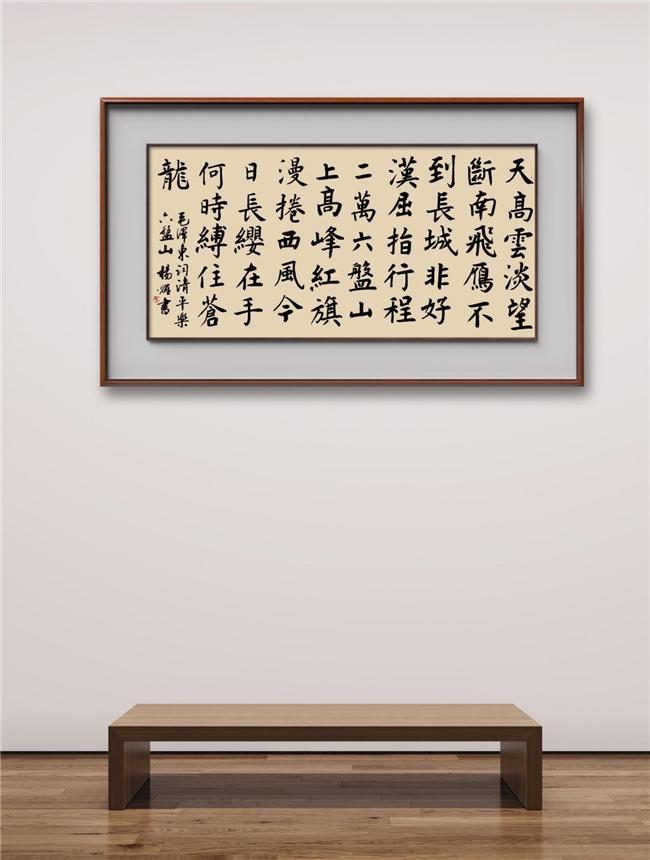 天髙雲淡望
斷南飛鴈不
到長城非好
漢屈指行程
二萬六盤山
上髙峰紅旗
漫捲西風今
日長纓在手
何時縛住蒼
龍
毛澤東词清平樂
六盤山 楊書